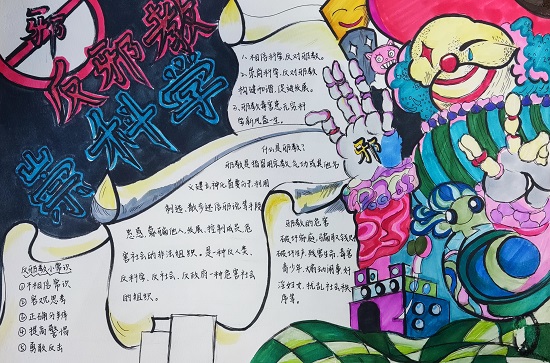 邪
反邪教
崇科学
1、相信科学,反对邪教。
2、崇尚科学,反对邪教
构建和谐,促进发展。
3、邪教毒害忠元宗科
学利民益一生。
什么是邪教?
邪教是指冒用宗教、气功或其他名
义建立神化首要分子,利用
制造、散步歪理邪说等手段
蛊惑、蒙骗他人,发展、控制成员,危
害社会的非法组织,是一种反人类、
反科学、反社会、反政府一种危害社会
的组织。
邪
邪教的危害
破坏家庭、骗取钱财
破坏生产、残害生命、毒害
青少年、
淫妇女、扰乱社会秩
序等。
反邪教小常识
①相信常识
②客观思考
③正确分辨
④提高警惕
⑤勇敢反击